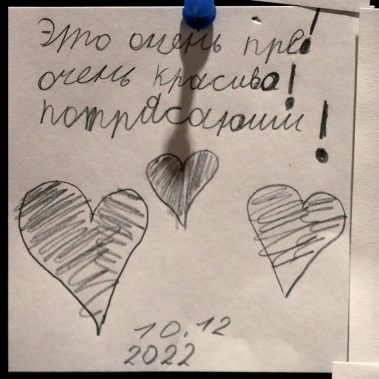 Это очень пре!
очень красива!
потрясающи!
10.12
2022